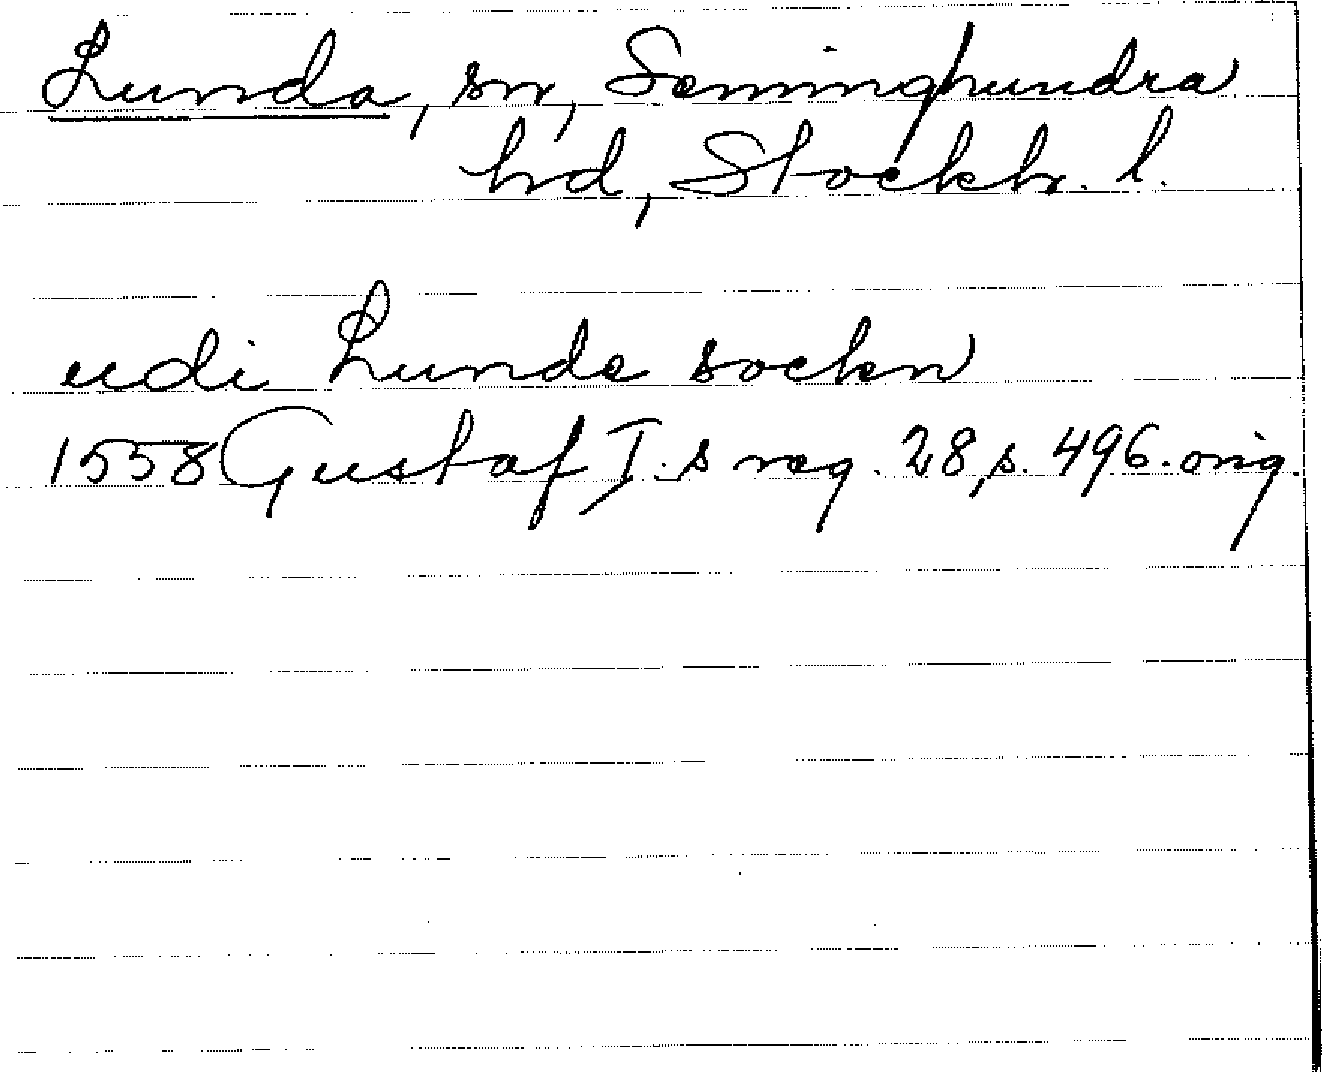 Lunda, sn, Seminghundra
hd, Stockh. l.
udi Lunde sockn
1558 Gustaf I.s reg. 28, s. 496. orig.